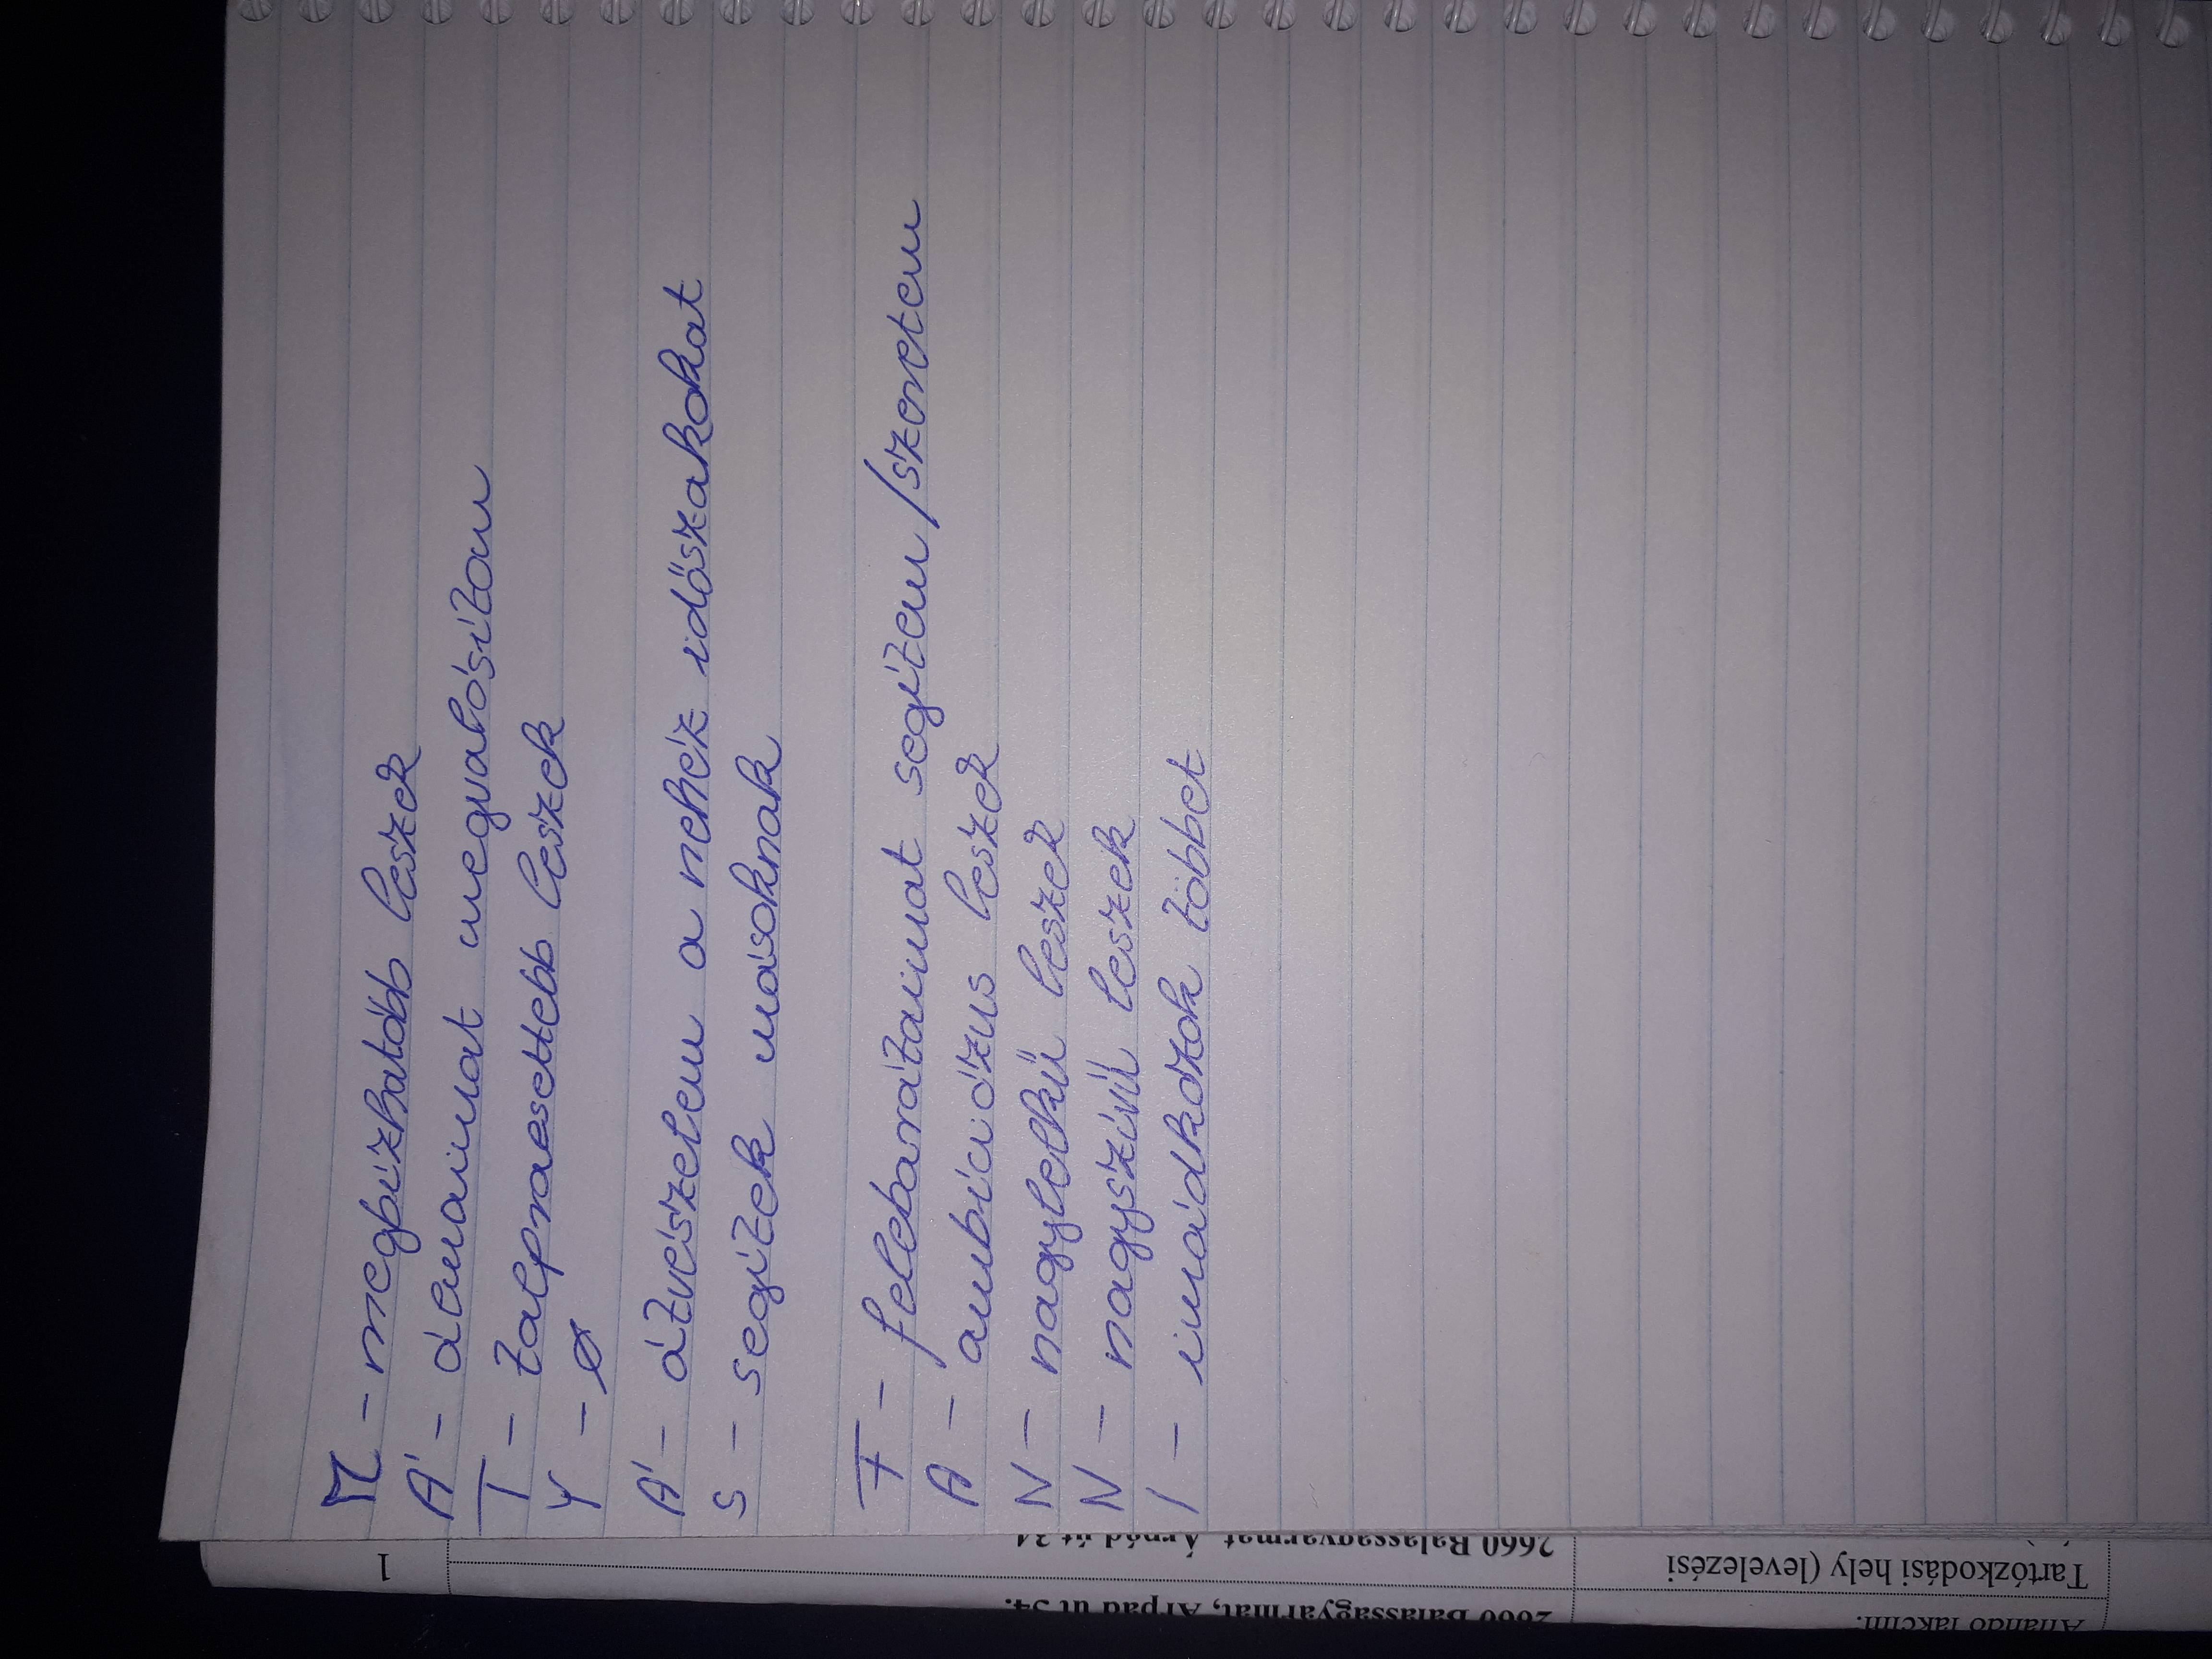 M - megbízhatóbb leszek
Á - álmaimat megvalósítom
T - talpraesettebb leszek
Y - ø
Á - átvészelem a nehéz időszakokat
S - segítek másoknak
F - felebarátaimat segítem/szeretem
A - ambiciózus leszek
N - nagylelkű leszek
N - nagyszívű leszek
I - imádkozok többet
1
2660 Balassagyarmat, Árpád út 34.
Tartózkodási hely (levelezési
2660 Balassagyarmat, Árpád út 34.
Állandó lakcím: